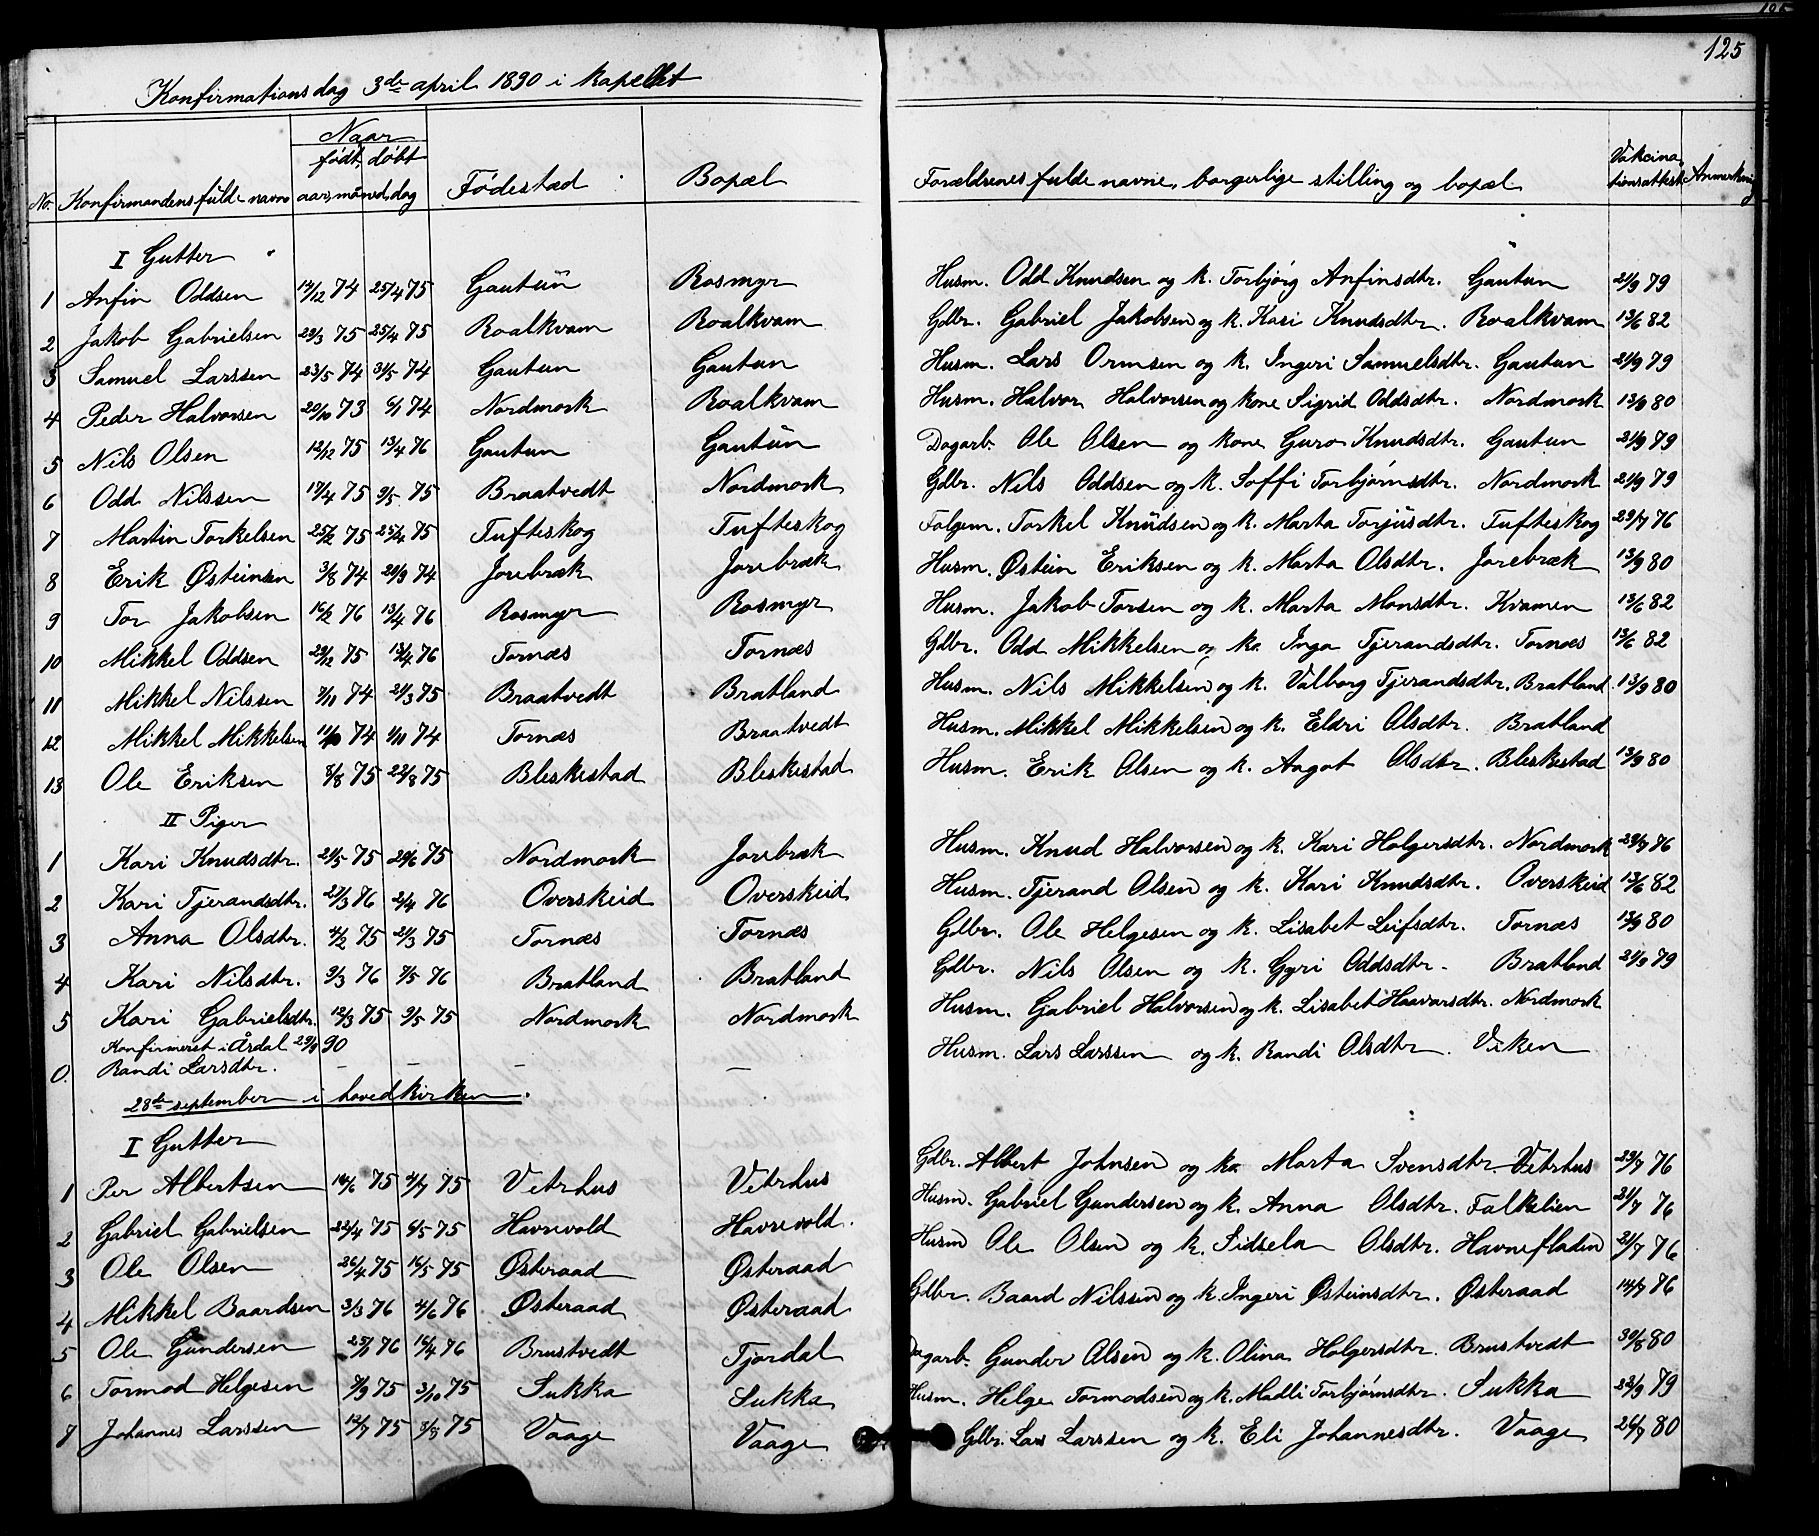 125
Konfirmationsdag 3de april 1890 i kapellet
No. Konfirmandens fulde navn Naar født, døbt aar, måned, dag Fødestad Bopæl Forældrenes fulde navne, borgerlige stilling og bopæl Vakcinationsattest Anmerkning
I Gutter
1 Anfin Oddsen 14/12 74 25/4 75 Gautun Rosmyr Husm. Odd Knudsen og k. Torbjørg Anfinsdtr. Gautun 21/9 79
2 Jakob Gabrielsen 29/3 75 25/4 75 Roalkvam Roalkvam Gdbr. Gabriel Jakobsen og k. Kari Knudsdtr. Roalkvam 13/6 82
3 Samuel Larssen 23/5 74 31/5 74 Gautun Gautun Husm. Lars Ormsen og k. Ingeri Samuelsdtr. Gautun 21/9 79
4 Peder Halvorsen 20/10 73 6/1 74 Nordmork Roalkvam Husm. Halvor Halvorsen og kone Sigrid Oddsdtr. Nordmork 13/9 80
5 Nils Olsen 12/12 75 13/4 76 Gautun Gautun Dagarb. Ole Olsen og kone Guro Knudsdtr. Gautun 21/9 79
6 Odd Nilssen 17/4 75 9/5 75 Braatvedt Nordmork Gdbr. Nils Oddsen og k. Soffi Torbjørnsdtr. Nordmork 21/9 79
7 Martin Torkelsen 25/2 75 25/4 75 Tufteskog Tufteskog Folgem. Torkel Knudsen og k. Marta Torjusdtr. Tufteskog 29/7 76
8 Erik Østeinsen 3/8 74 20/9 74 Jorebræk Jorebræk Husm. Østein Eriksen og k. Marta Olsdtr. Jorebræk 13/9 80
9 Tor Jakobsen 16/2 76 13/4 76 Rosmyr Rosmyr Husm. Jakob Torsen og k. Marta Monsdtr. Kvamen 13/6 82
10 Mikkel Oddsen 29/12 75 13/4 76 Tornæs Tornæs Gdbr. Odd Mikkelsen og k. Inga Tjerandsdtr. Tornæs 13/6 82
11 Mikkel Nilssen 9/10 74 21/3 75 Braatvedt Bratland Husm. Nils Mikkelsen og k. Valborg Tjerandsdtr. Bratland 13/9 80
12 Mikkel Mikkelsen 11/10 74 1/11 74 Tornæs Braatvedt Husm. Mikkel Mikkelsen og k. Eldri Olsdtr. Bratland
13 Ole Eriksen 8/8 75 22/8 75 Bleskestad Bleskestad Husm. Erik Olsen og k. Aagot Olsdtr. Bleskestad 13/9 80
II Piger
1 Kari Knudsdtr. 21/5 75 20/6 75 Nordmork Jorebræk Husm. Knud Halvorsen og k. Kari Holgersdtr. Nordmork 29/7 76
2 Kari Tjerandsdtr. 22/3 76 2/4 76 Overskeid Overskeid Husm. Tjerand Olsen og k. Kari Knudsdtr. Overskeid 13/6 82
3 Anna Olsdtr. 4/2 75 21/3 75 Tornæs Tornæs Gdbr. Ole Helgesen og k. Lisabet Leifsdtr. Tornæs 13/9 80
4 Kari Nilsdtr. 9/3 76 7/5 76 Bratland Bratland Gdbr. Nils Olsen og k. Gyri Oddsdtr. Bratland 21/9 79
5 Kari Gabrielsdtr. 12/3 75 9/5 75 Nordmork Nordmork Husm. Gabriel Halvorsen og k. Lisabet Haavarsdtr. Nordmork
Konfirmeret i Årdal 29/9 90
0. Randi Larsdtr. – – – – Husm. Lars Larssen og k. Randi Olsdtr. Viken
28de september i hovedkirken.
I Gutter
1 Per Albertsen 16/6 75 4/7 75 Vetrhus Vetrhus Gdbr. Albert Johnsen og k. Marta Svensdtr. Vetrhus 29/7 76
2 Gabriel Gabrielsen 22/4 75 6/5 75 Havrevold Havrevold. Husm. Gabriel Gundersen og k. Anna Olsdtr. Falkelien 21/7 76
3 Ole Olsen 26/4 75 16/5 75 Østeraad Østeraad Husm Ole Olsen og k. Sidsela Olsdtr. Havnefladen 21/7 76
4 Mikkel Baardsen 3/3 76 4/6 76 Østeraad Østeraad Gdbr. Baard Nilssen og k. Ingeri Østeinsdtr. Østeraad 14/7 76
5 Ole Gundersen 25/1 76 16/4 76 Brustvedt Tjordal Dagarb. Gunder Olsen og k. Olina Holgersdtr. Brustvedt 30/8 80
6 Tormod Helgesen 7/9 75 3/10 75 Sukka Sukka Husm. Helge Tormodsen og k. Madli Torbjørnsdtr. Sukka 23/9 79
7 Johannes Larssen 12/7 75 8/8 75 Vaage Vaage Gdbr. Lars Larssen og k. Eli Johannesdtr. Vaage 26/7 80